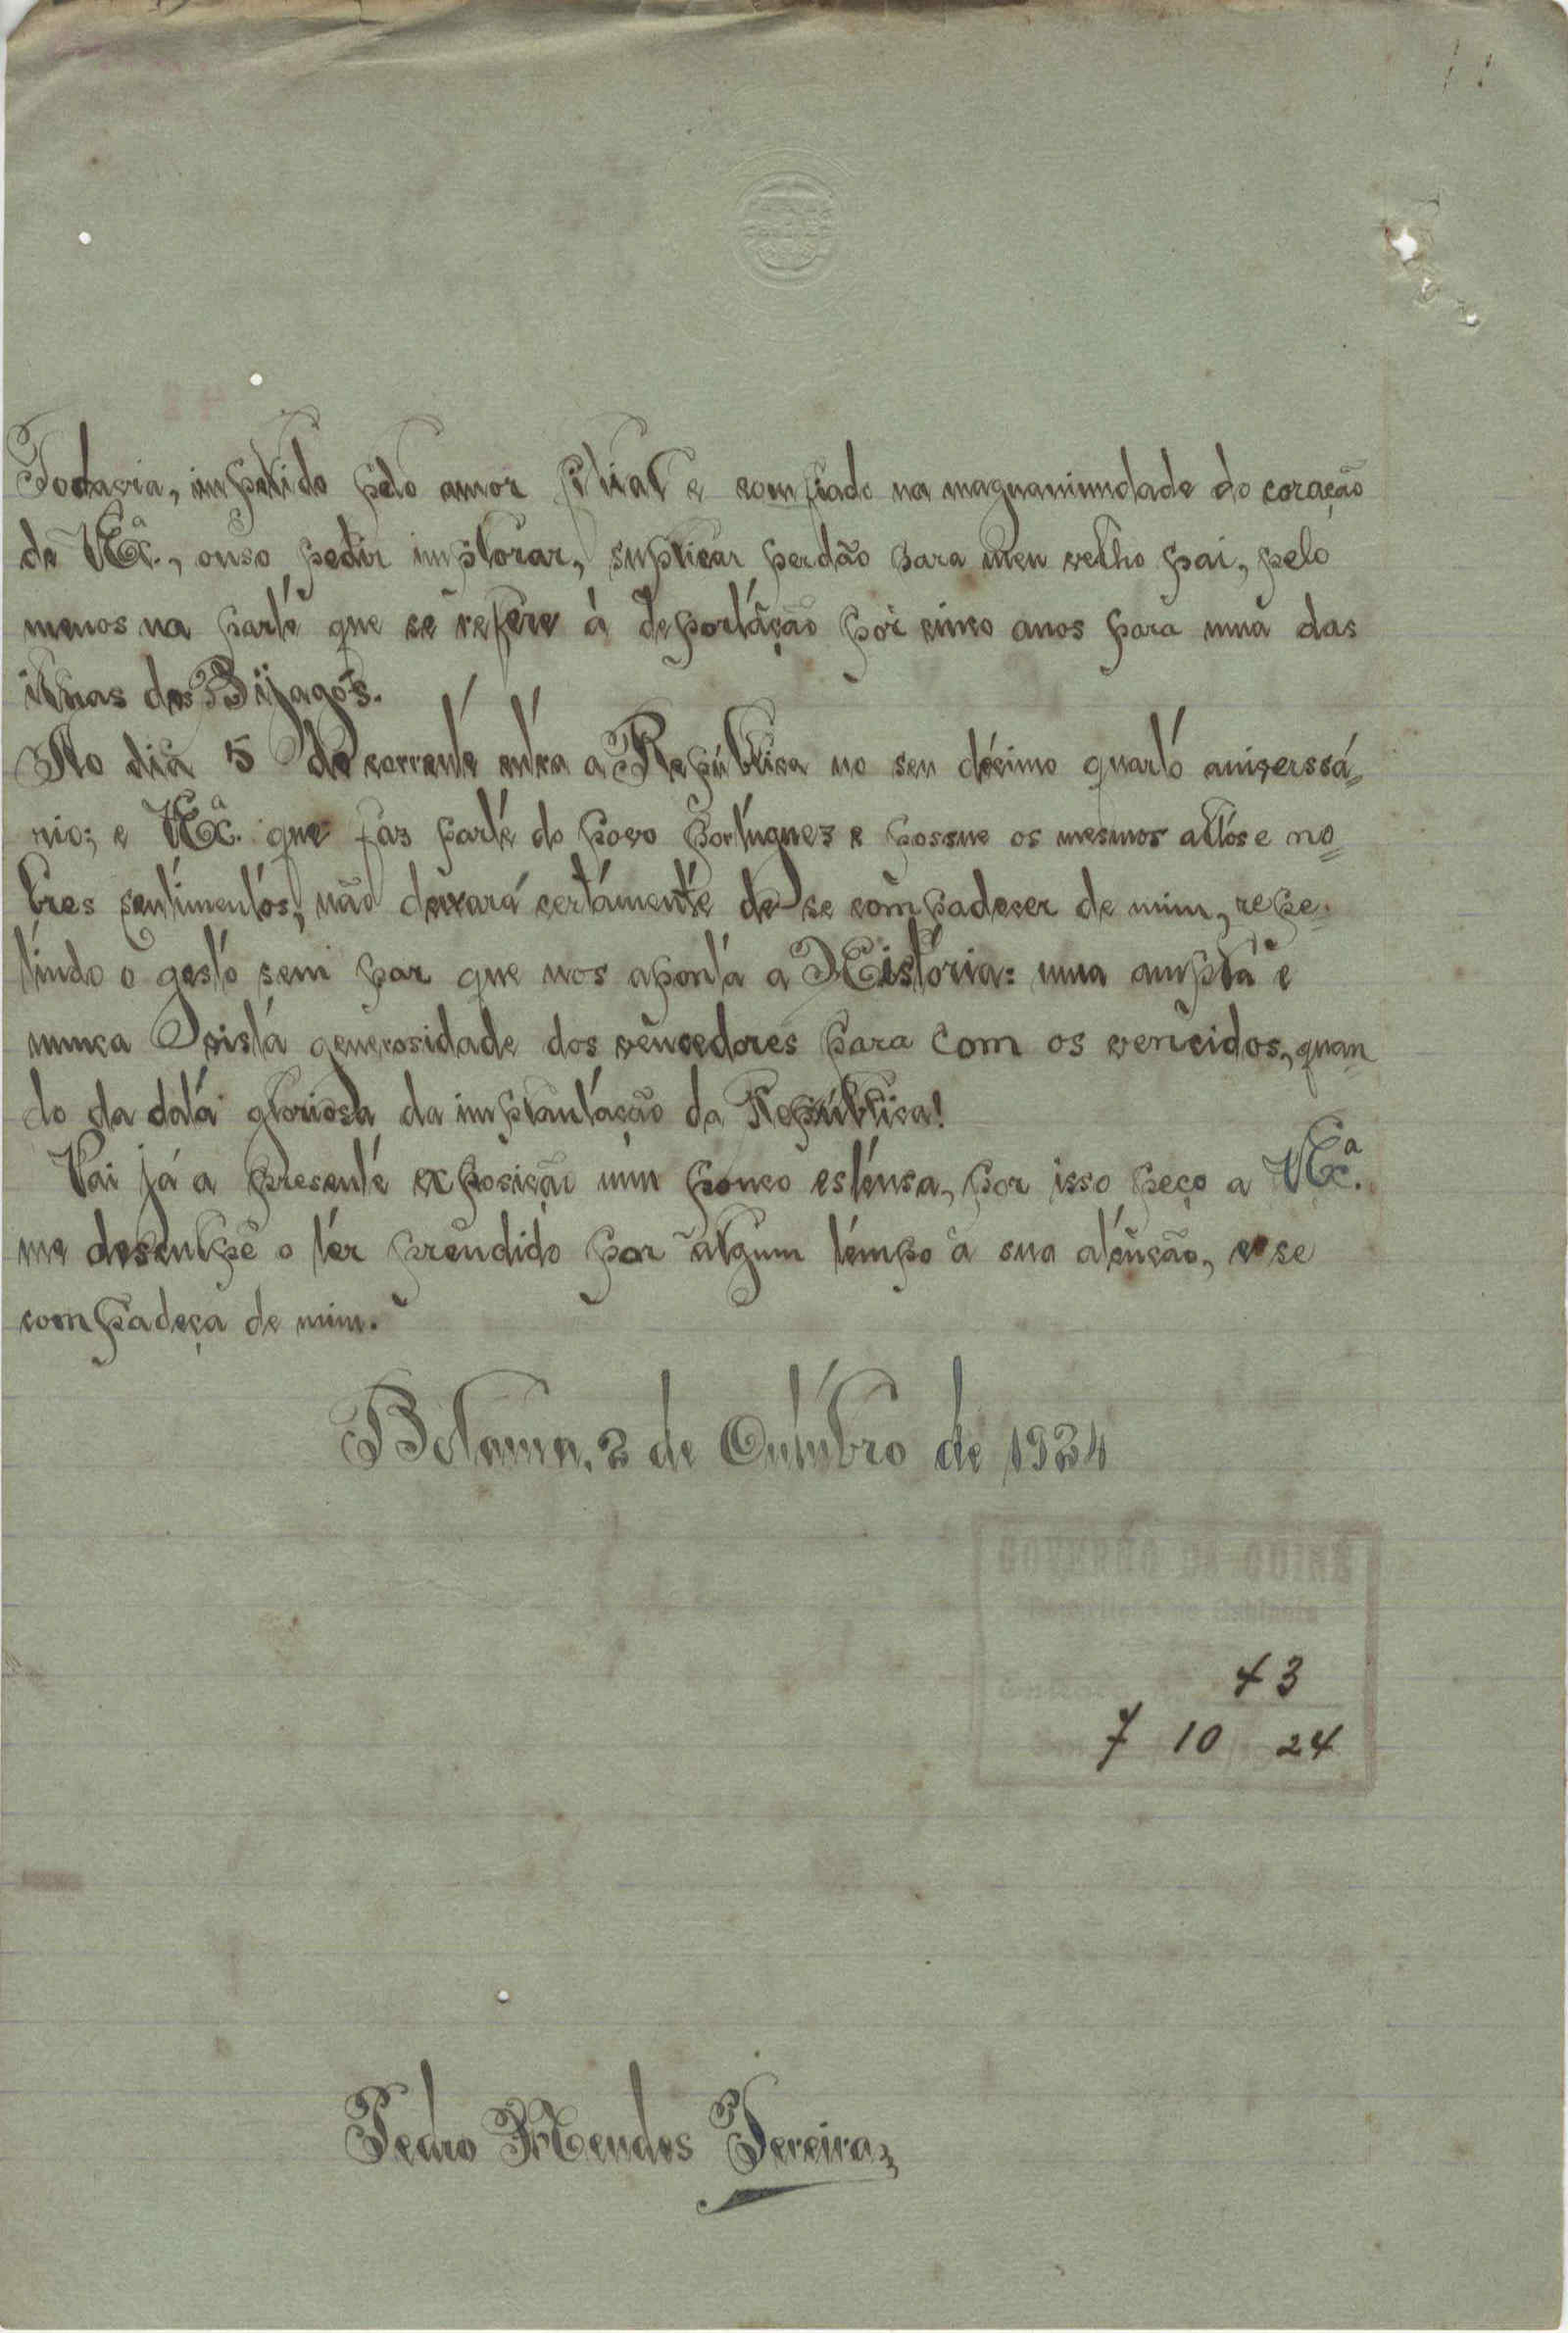 Todavia, impelido pelo amor filial e comfiado na magnanimidade do coração
de V.Exª., ouso pedir implorar, suplicar perdão para meu velho pai, pelo
menos na parte que se refere á deportáção por cinco anos para uma das
ilhas dos Bijagós.
No dia 5 do corrente entra a República no seu décimo quarto aniverssá=
rio; e V.Exª. que faz parte do povo portuguez e possue os mesmos altos e no=
bres sentimentos, não deixará certamente de se compadecer de mim, repe=
tindo o gesto sem par que nos aponta a História: uma ampla e
nunca vista generosidade dos vencedores para com os vencidos, quan=
do da data gloriosa da implantação da República!
Vai já a presente exposição um pouco estensa, por isso peço a V.Exª.
me desculpe o ter prendido por algum tempo a sua atenção, e se
compadeça de mim.
Bolama, 2 de Outubro de 1924
GOVERNO DA GUINÉ
Repartição do Gabinete
43
7 10 24
Pedro Mendes Pereira